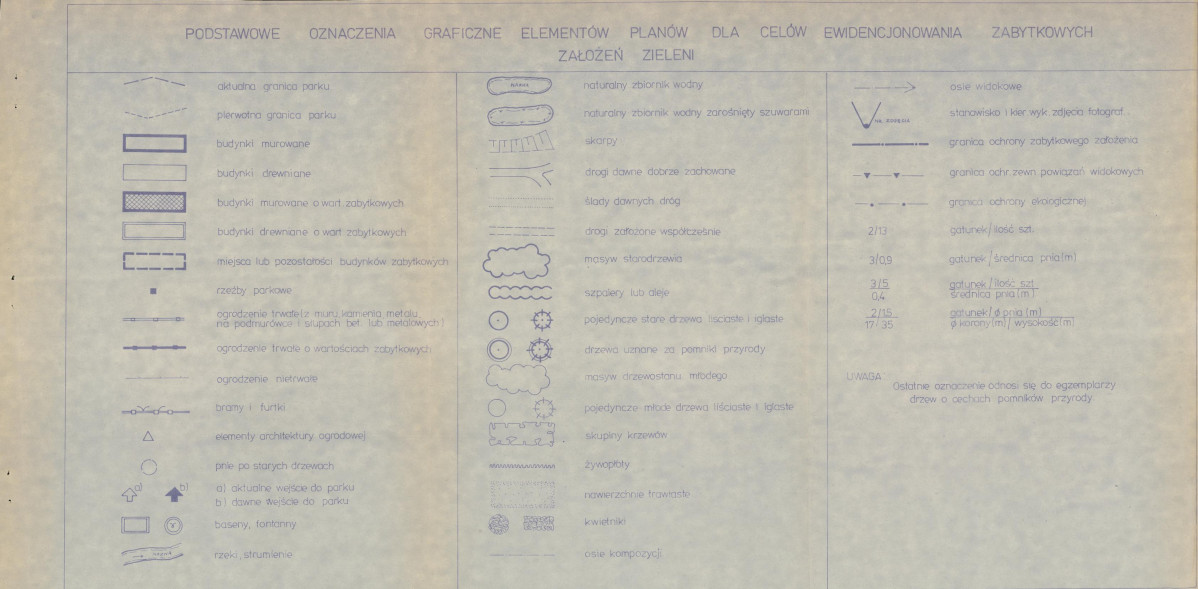 PODSTAWOWE OZNACZENIA GRAFICZNE ELEMENTÓW PLANÓW DLA CELÓW EWIDENCJONOWANIA ZABYTKOWYCH
ZAŁOŻEŃ ZIELENI
aktualna granica parku
pierwotna granica parku
budynki murowane
budynki drewniane
budynki murowane o wart. zabytkowych
budynki drewniane o wart. zabytkowych
miejsca lub pozostałości budynków zabytkowych
rzeźby parkowe
ogrodzenie trwałe (z muru, kamienia metalu
na podmurówce i słupach bet. lub metalowych)
ogrodzenie trwałe o wartościach zabytkowych
ogrodzenie nietrwałe
bramy i furtki
elementy architektury ogrodowej
pnie po starych drzewach
a) b) a) aktualne wejście do parku
b) dawne wejście do parku
baseny, fontanny
rzeki, strumienie
naturalny zbiornik wodny
naturalny zbiornik wodny zarośnięty szuwarami
skarpy
drogi dawne dobrze zachowane
ślady dawnych dróg
drogi założone współcześnie
masyw starodrzewia
szpalery lub aleje
pojedyncze stare drzewa liściaste i iglaste
drzewa uznane za pomniki przyrody
masyw drzewostanu młodego
pojedyncze młode drzewa liściaste i iglaste
skupiny krzewów
żywopłoty
nawierzchnie trawiaste
kwietniki
osie kompozycji
osie widokowe
stanowisko i kier. wyk. zdjęcia fotograf..
granica ochrony zabytkowego założenia
granica ochr. zewn. powiązań widokowych
granica ochrony ekologicznej
2/13 gatunek / ilość szt.
3/0,9 gatunek / średnica pnia (m)
3/5 gatunek / ilość szt.
0,4 średnica pnia (m)
2/1,5 gatunek / ø pnia (m)
17/35 ø korony (m) / wysokość (m)
UWAGA
Ostatnie oznaczenie odnosi się do egzemplarzy
drzew o cechach pomników przyrody